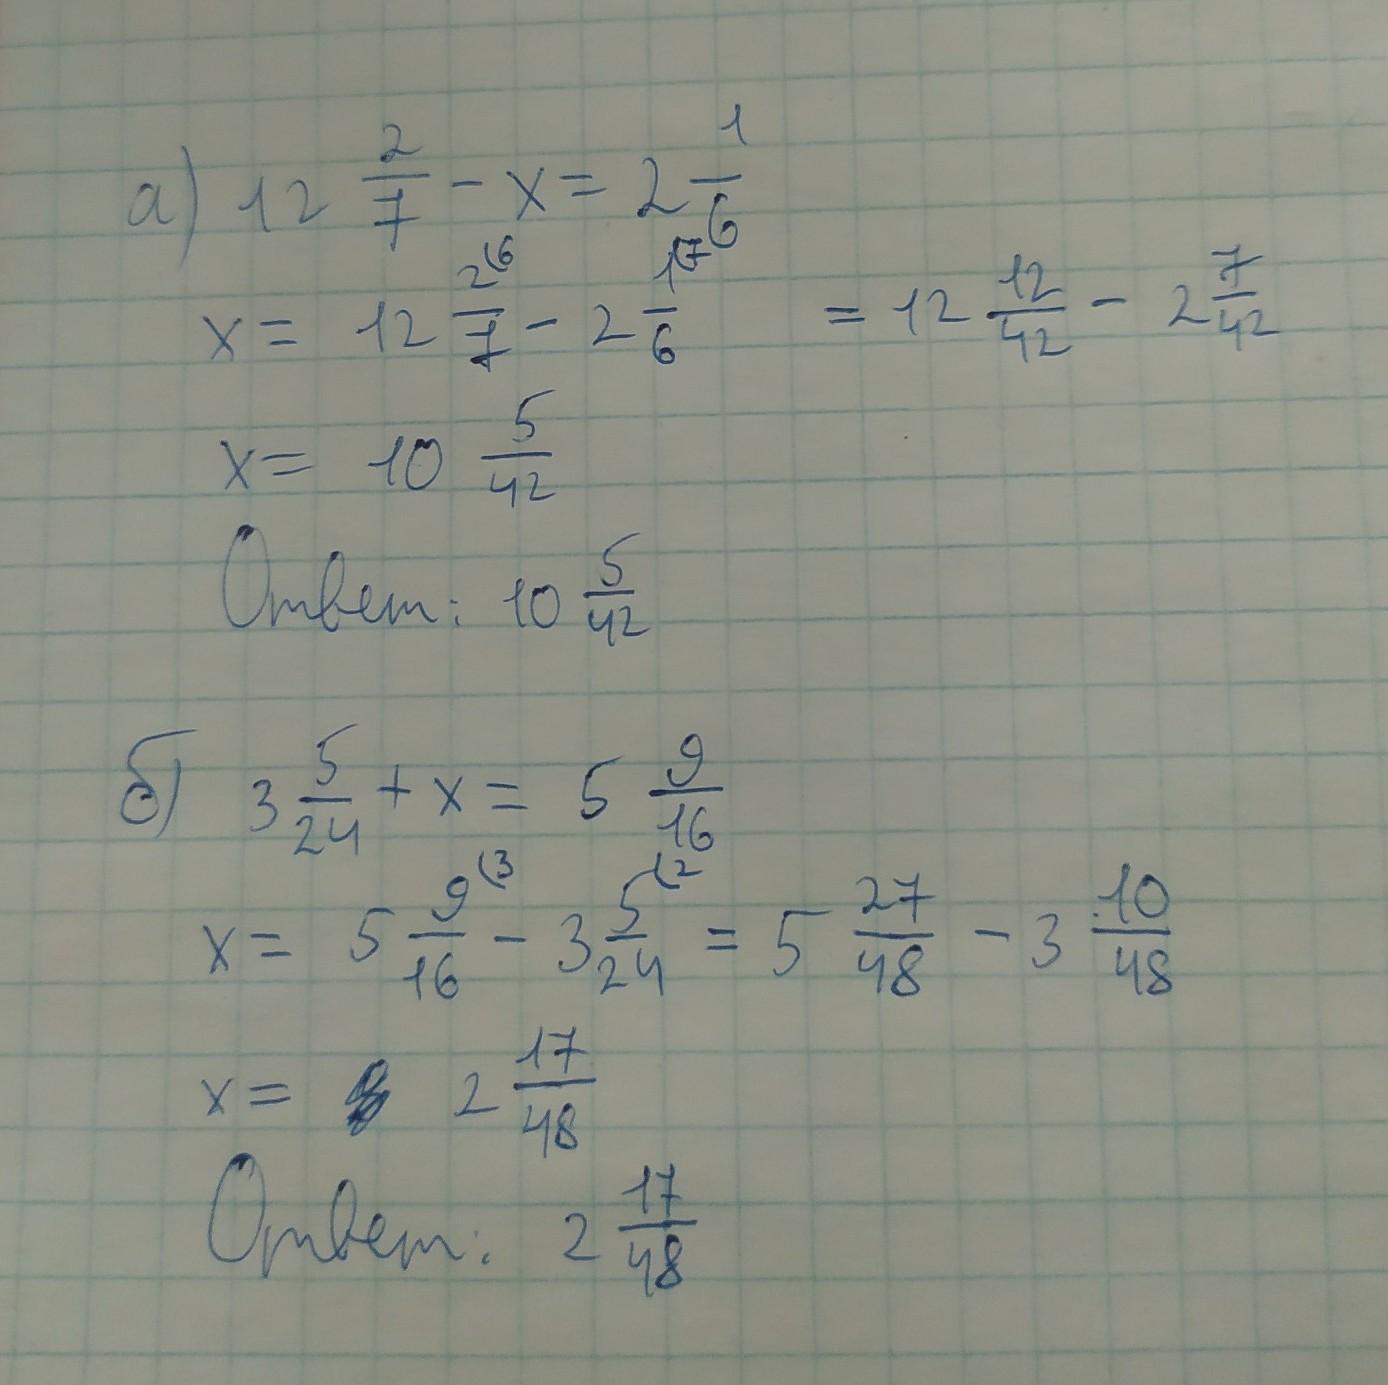 а) 12 2/7 - x = 2 1/6
x = 12 2/7 (6 - 2 1/6 (7 = 12 12/42 - 2 7/42
x = 10 5/42
Ответ: 10 5/42
б) 3 5/24 + x = 5 9/16
x = 5 9/16 (3 - 3 5/24 (2 = 5 27/48 - 3 10/48
x = 2 17/48
Ответ: 2 17/48